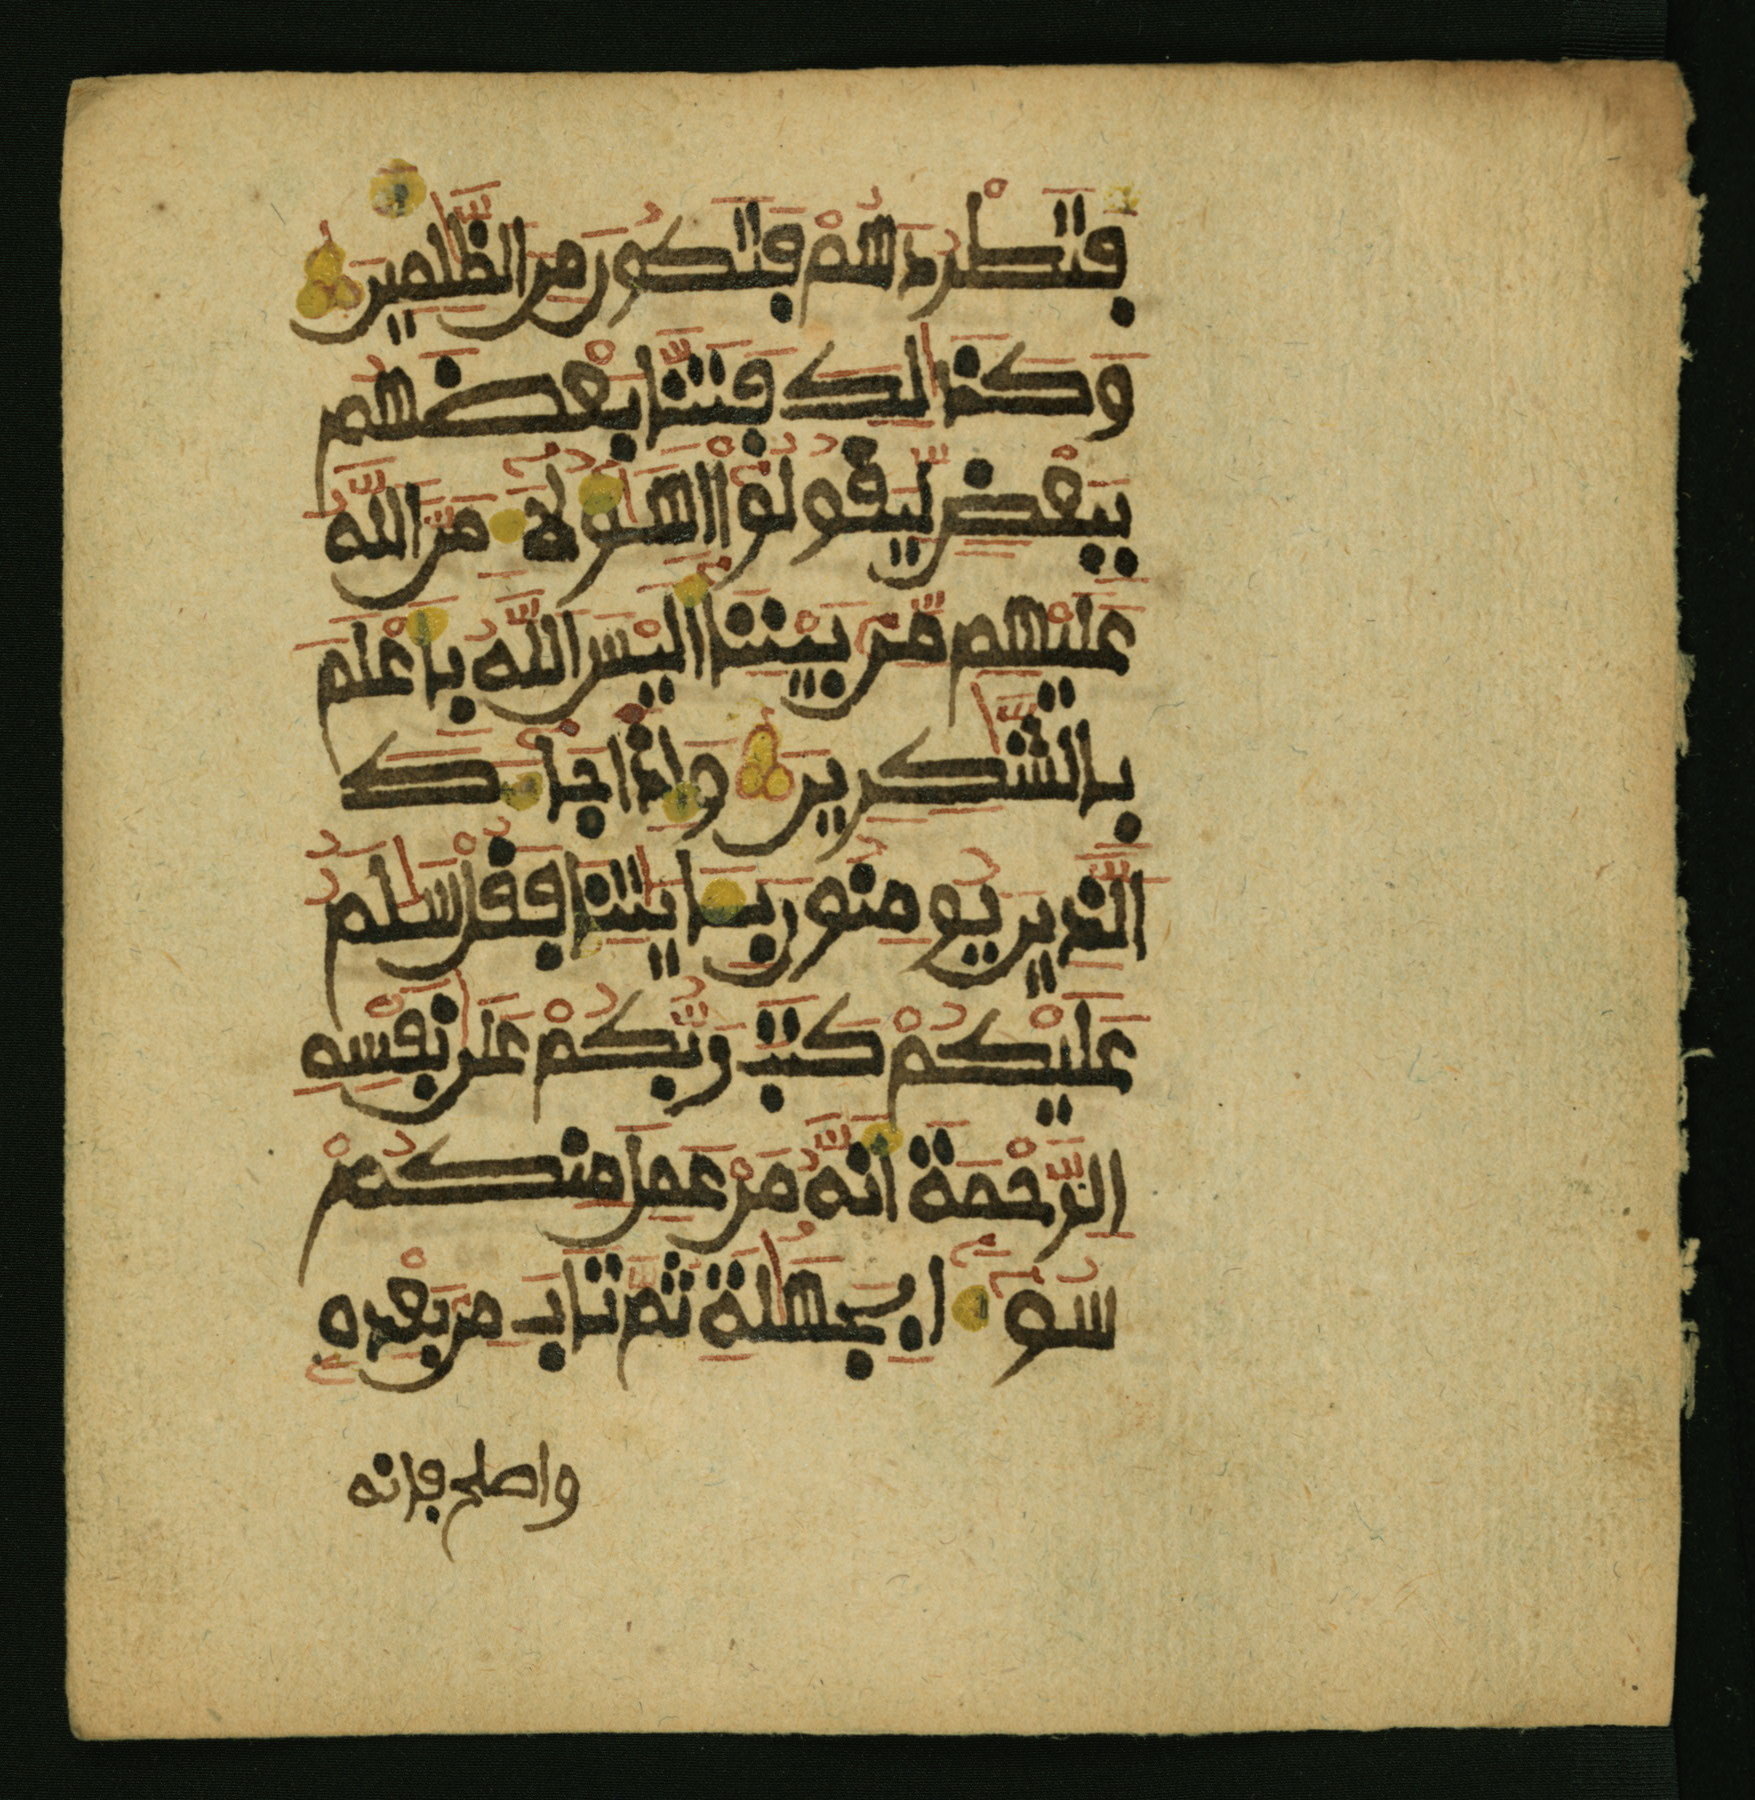 فَتَطْرُدَهُمْ فَتَكُونَ مِنَ الظَّٰلِمِينَ
وَكَذَٰلِكَ فَتَنَّا بَعْضَهُم
بِبَعْضٍ لِّيَقُولُوٓاْ أَهَٰٓؤُلَآءِ مَنَّ اللَّهُ
عَلَيْهِم مِّنۢ بَيْنِنَآ أَلَيْسَ اللَّهُ بِأَعْلَمَ
بِالشَّٰكِرِينَ وَإِذَا جَآءَكَ
الَّذِينَ يُومِنُونَ بِـَٔايَٰتِنَا فَقُلْ سَلَٰمٌ
عَلَيْكُمْ كَتَبَ رَبُّكُمْ عَلَىٰ نَفْسِهِ
الرَّحْمَةَ أَنَّهُ مَنْ عَمِلَ مِنكُمْ
سُوٓءًا بِجَهَٰلَةٍ ثُمَّ تَابَ مِنۢ بَعْدِهِ
واصلح فانه